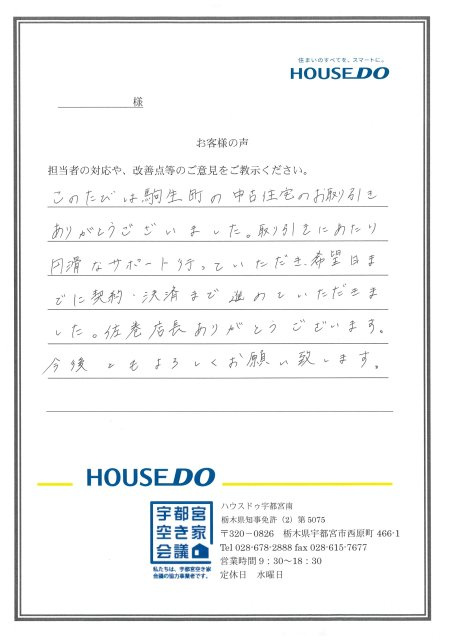 住まいのすべてを、スマートに。
HOUSEDO
様
お客様の声
担当者の対応や、改善点等のご意見をご教示ください。
このたびは駒生町の中古住宅のお取引き
ありがとうございました。取引きにあたり
円滑なサポート行っていただき、希望日ま
でに契約・決済まで進めていただきま
した。佐巻店長ありがとうございます。
今後ともよろしくお願い致します。
HOUSEDO
宇都宮
空き家
会議
私たちは、宇都宮空き家
会議の協力事業者です。
ハウスドゥ宇都宮南
栃木県知事免許（2）第5075
〒320－0826　栃木県宇都宮市西原町 466-1
Tel 028-678-2888 fax 028-615-7677
営業時間 9：30～18：30
定休日　水曜日